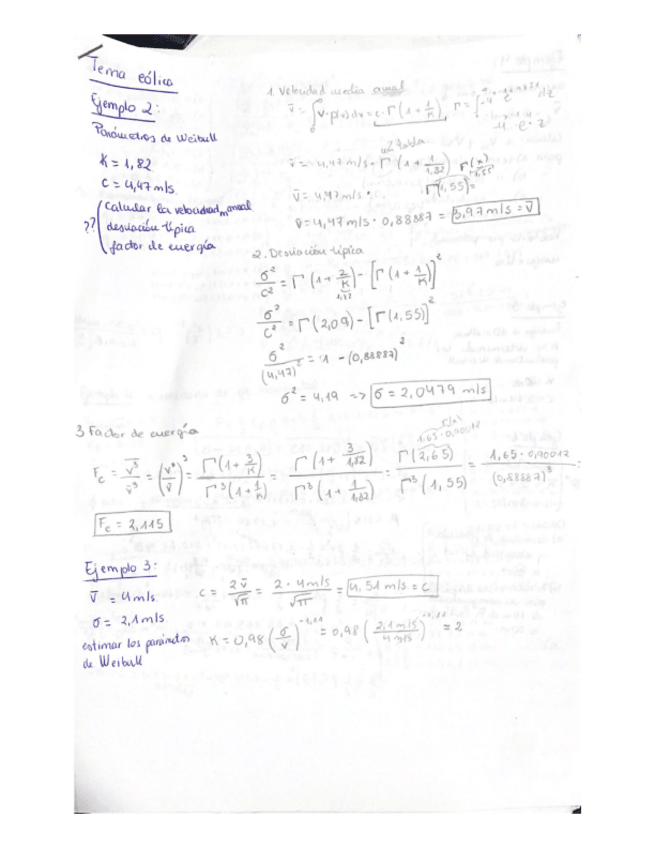 Tema eólica
Ejemplo 2:
Parámetros de Weibull
K = 1,82
C = 4,47 m/s
?? Calcular la velocidad m anual
desviación típica
factor de energía
1. Velocidad media anual
v̄ = ∫ v · p(v) dv = c · Γ(1 + 1/K)
v̄ = 4,47 m/s · Γ(1 + 1/1,82)
v̄ = 4,47 m/s · Γ(1,55) =
v̄ = 4,47 m/s · 0,88887 = 3,97 m/s = v̄
2. Desviación típica
σ²/c² = Γ(1 + 2/K) - [Γ(1 + 1/K)]²
1,82
σ²/c² = Γ(2,09) - [Γ(1,55)]²
σ²/(4,47)² = 1 - (0,88887)²
σ² = 4,19 => σ = 2,0479 m/s
3 Factor de energía
Γ(x)
1,65 · 0,90012
Fe = v̄³/v̄³ = (v³/v̄)³ = Γ(1 + 3/K)/Γ³(1 + 1/K) = Γ(1 + 3/1,82)/Γ³(1 + 1/1,82) = Γ(2,65)/Γ³(1,55) = 1,65 · 0,90012/(0,88887)³ =
Fe = 2,115
Ejemplo 3:
v̄ = 4 m/s
σ = 2,1 m/s
estimar los parámetros
de Weibull
C = 2v̄/√π = 2 · 4 m/s/√π = 4,51 m/s = C
K = 0,98 (σ/v)^-1,11 = 0,98 (2,1 m/s/4 m/s)^-1,11 = 2